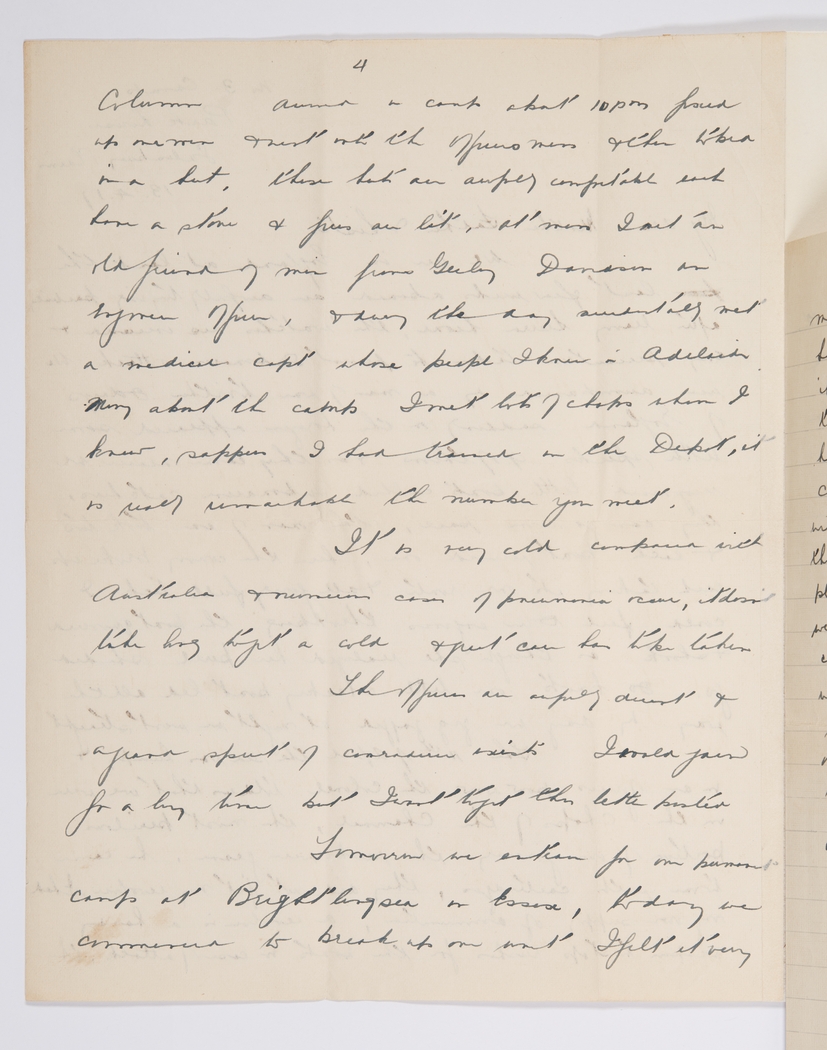 4
Column arrived in camp about 10pm fixed
up our men & went into the Officers mess & then looked
in a hut, these huts are awfully comfortable each
have a stove & fires are lit, at mess I met an
old friend of mine from Geelong Davidson an
Engineer Officer, & during the day accidentally met
a medical capt whose people I knew in Adelaide
Moving about the camps I met lots of chaps whom I
knew, sappers I had trained in the Depot, it
is really remarkable the number you meet.
It is very cold compared with
Australia & numerous cases of pneumonia occur, it doesn't
take long to get a cold & great care has to be taken
The Officers are awfully decent &
a grand spirit of comradeship exists I could yarn
for a long time but I want to get this letter posted
Tomorrow we entrain for our permanent
camp at Brightlingsea in Essex, today we
commenced to break up our unit I felt it very